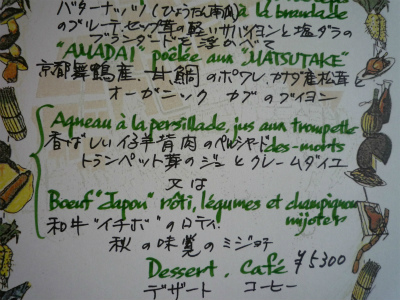 バターナッツ(ひょうたん南瓜) à la brandade
のブルーテ セップ茸の軽いサバイヨンと塩ダラの
ブランダードを浮かべて
"AMADAI" poêlée aux "MATSUTAKE"
京都舞鶴産、甘鯛のポワレ、カナダ産松茸と
オーガニック カブのブイヨン
Agneau à la persillade, jus aux trompette
des-morts
香ばしい仔羊背肉のペルシヤード
トランペット茸のジュとクレームダイユ
又は
Bœuf "Japon" rôti, légumes et champignon
mijoter
和牛"イチボ"のロティ
秋の味覚のミジョテ
Dessert, Café ¥5300
デザート コーヒー